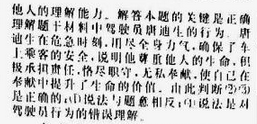 他人的理解能力。解答本题的关键是正确
理解题干材料中驾驶员唐迪生的行为。唐
迪生在危急时刻,用尽全身力气,确保了车
上乘客的安全,说明他尊重他人的生命,积
极承担责任,恪尽职守,无私奉献,使自己在
奉献中提升了生命的价值。由此判断②③
是正确的;①说法与题意相反;④说法是对
驾驶员行为的错误理解。